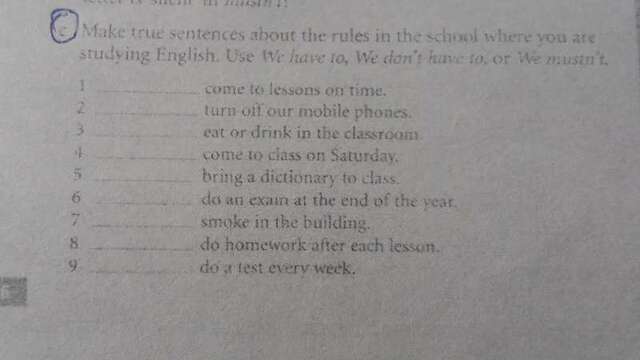 letter is silent in mustn't!
c Make true sentences about the rules in the school where you are
studying English. Use We have to, We don't have to, or We mustn't.
1 __________ come to lessons on time.
2 __________ turn off our mobile phones.
3 __________ eat or drink in the classroom.
4 __________ come to class on Saturday.
5 __________ bring a dictionary to class.
6 __________ do an exam at the end of the year.
7 __________ smoke in the building.
8 __________ do homework after each lesson.
9 __________ do a test every week.